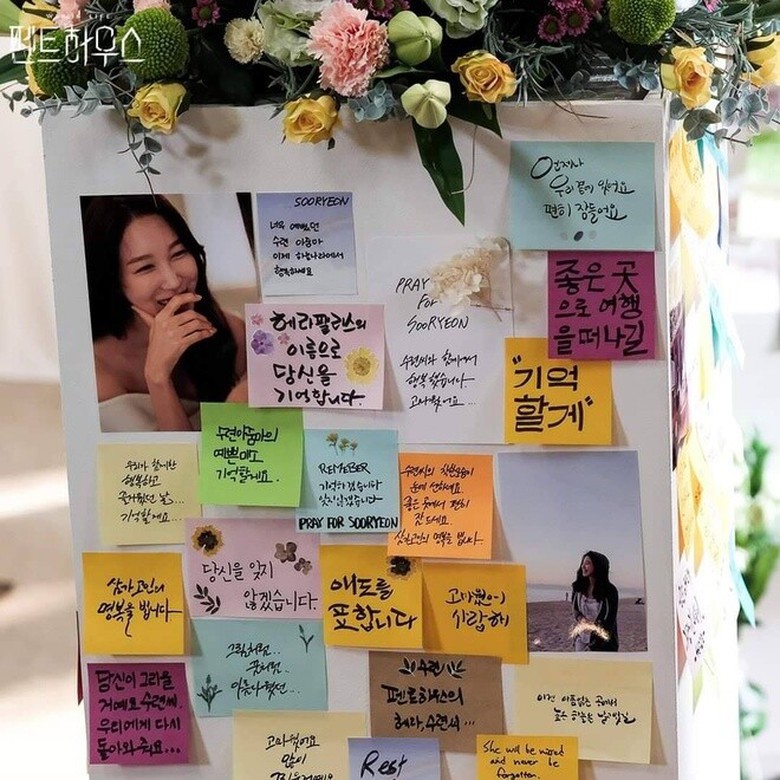 펜트하우스
언제나
우리 곁에 있어요
편히 잠들어요
SOORYEON
너무 예뻤던
수련 아줌마
이제 하늘나라에서
행복하세요
PRAY
For
SOORYEON
수련씨와 함께여서
행복했습니다
고마웠어요...
좋은 곳
으로 여행
을 떠나길
헤라팰리스의
이름으로
당신을
기억합니다.
"기억
할게"
수련아줌마의
예쁜미소
기억할게요.
REMEBER
기억하겠습니다
잊지않겠습니다
PRAY FOR SOORYEON
수련씨의 착한모습이
눈에 선하네요.
좋은 곳에서 편히
잠드세요.
삼가고인의 명복을 빕니다.
우리와 함께한
행복하고
즐거웠던 날...
기억할게요...
당신을 잊지
않겠습니다.
삼가 고인의
명복을 빕니다
애도를
표합니다
고마웠어
사랑해
그림처럼..
꽃처럼..
아름다웠던...
당신이 그리울
거예요 수련씨.
우리에게 다시
돌아와 줘요...
수련
펜트하우스의
헤라, 수련씨...
이젠 아픔없는 곳에서
고마웠어요
많이
Rest
She will be missed
and never be
forgotten.